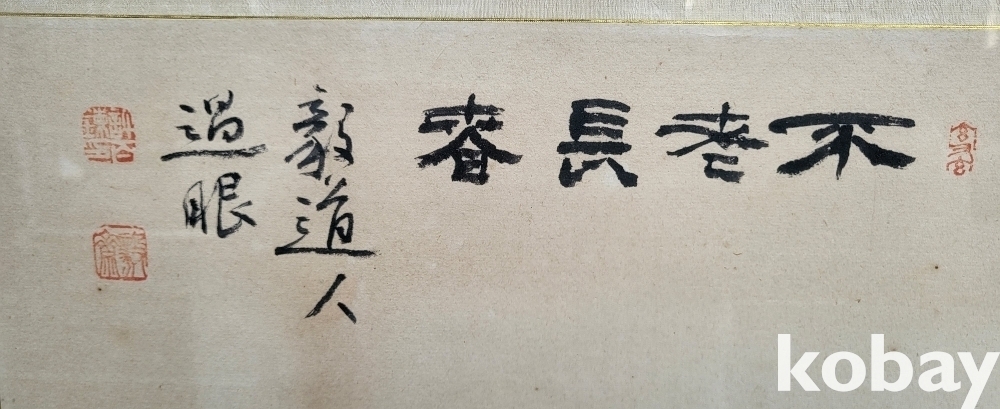 不老長春
毅道人
過眼
kobay